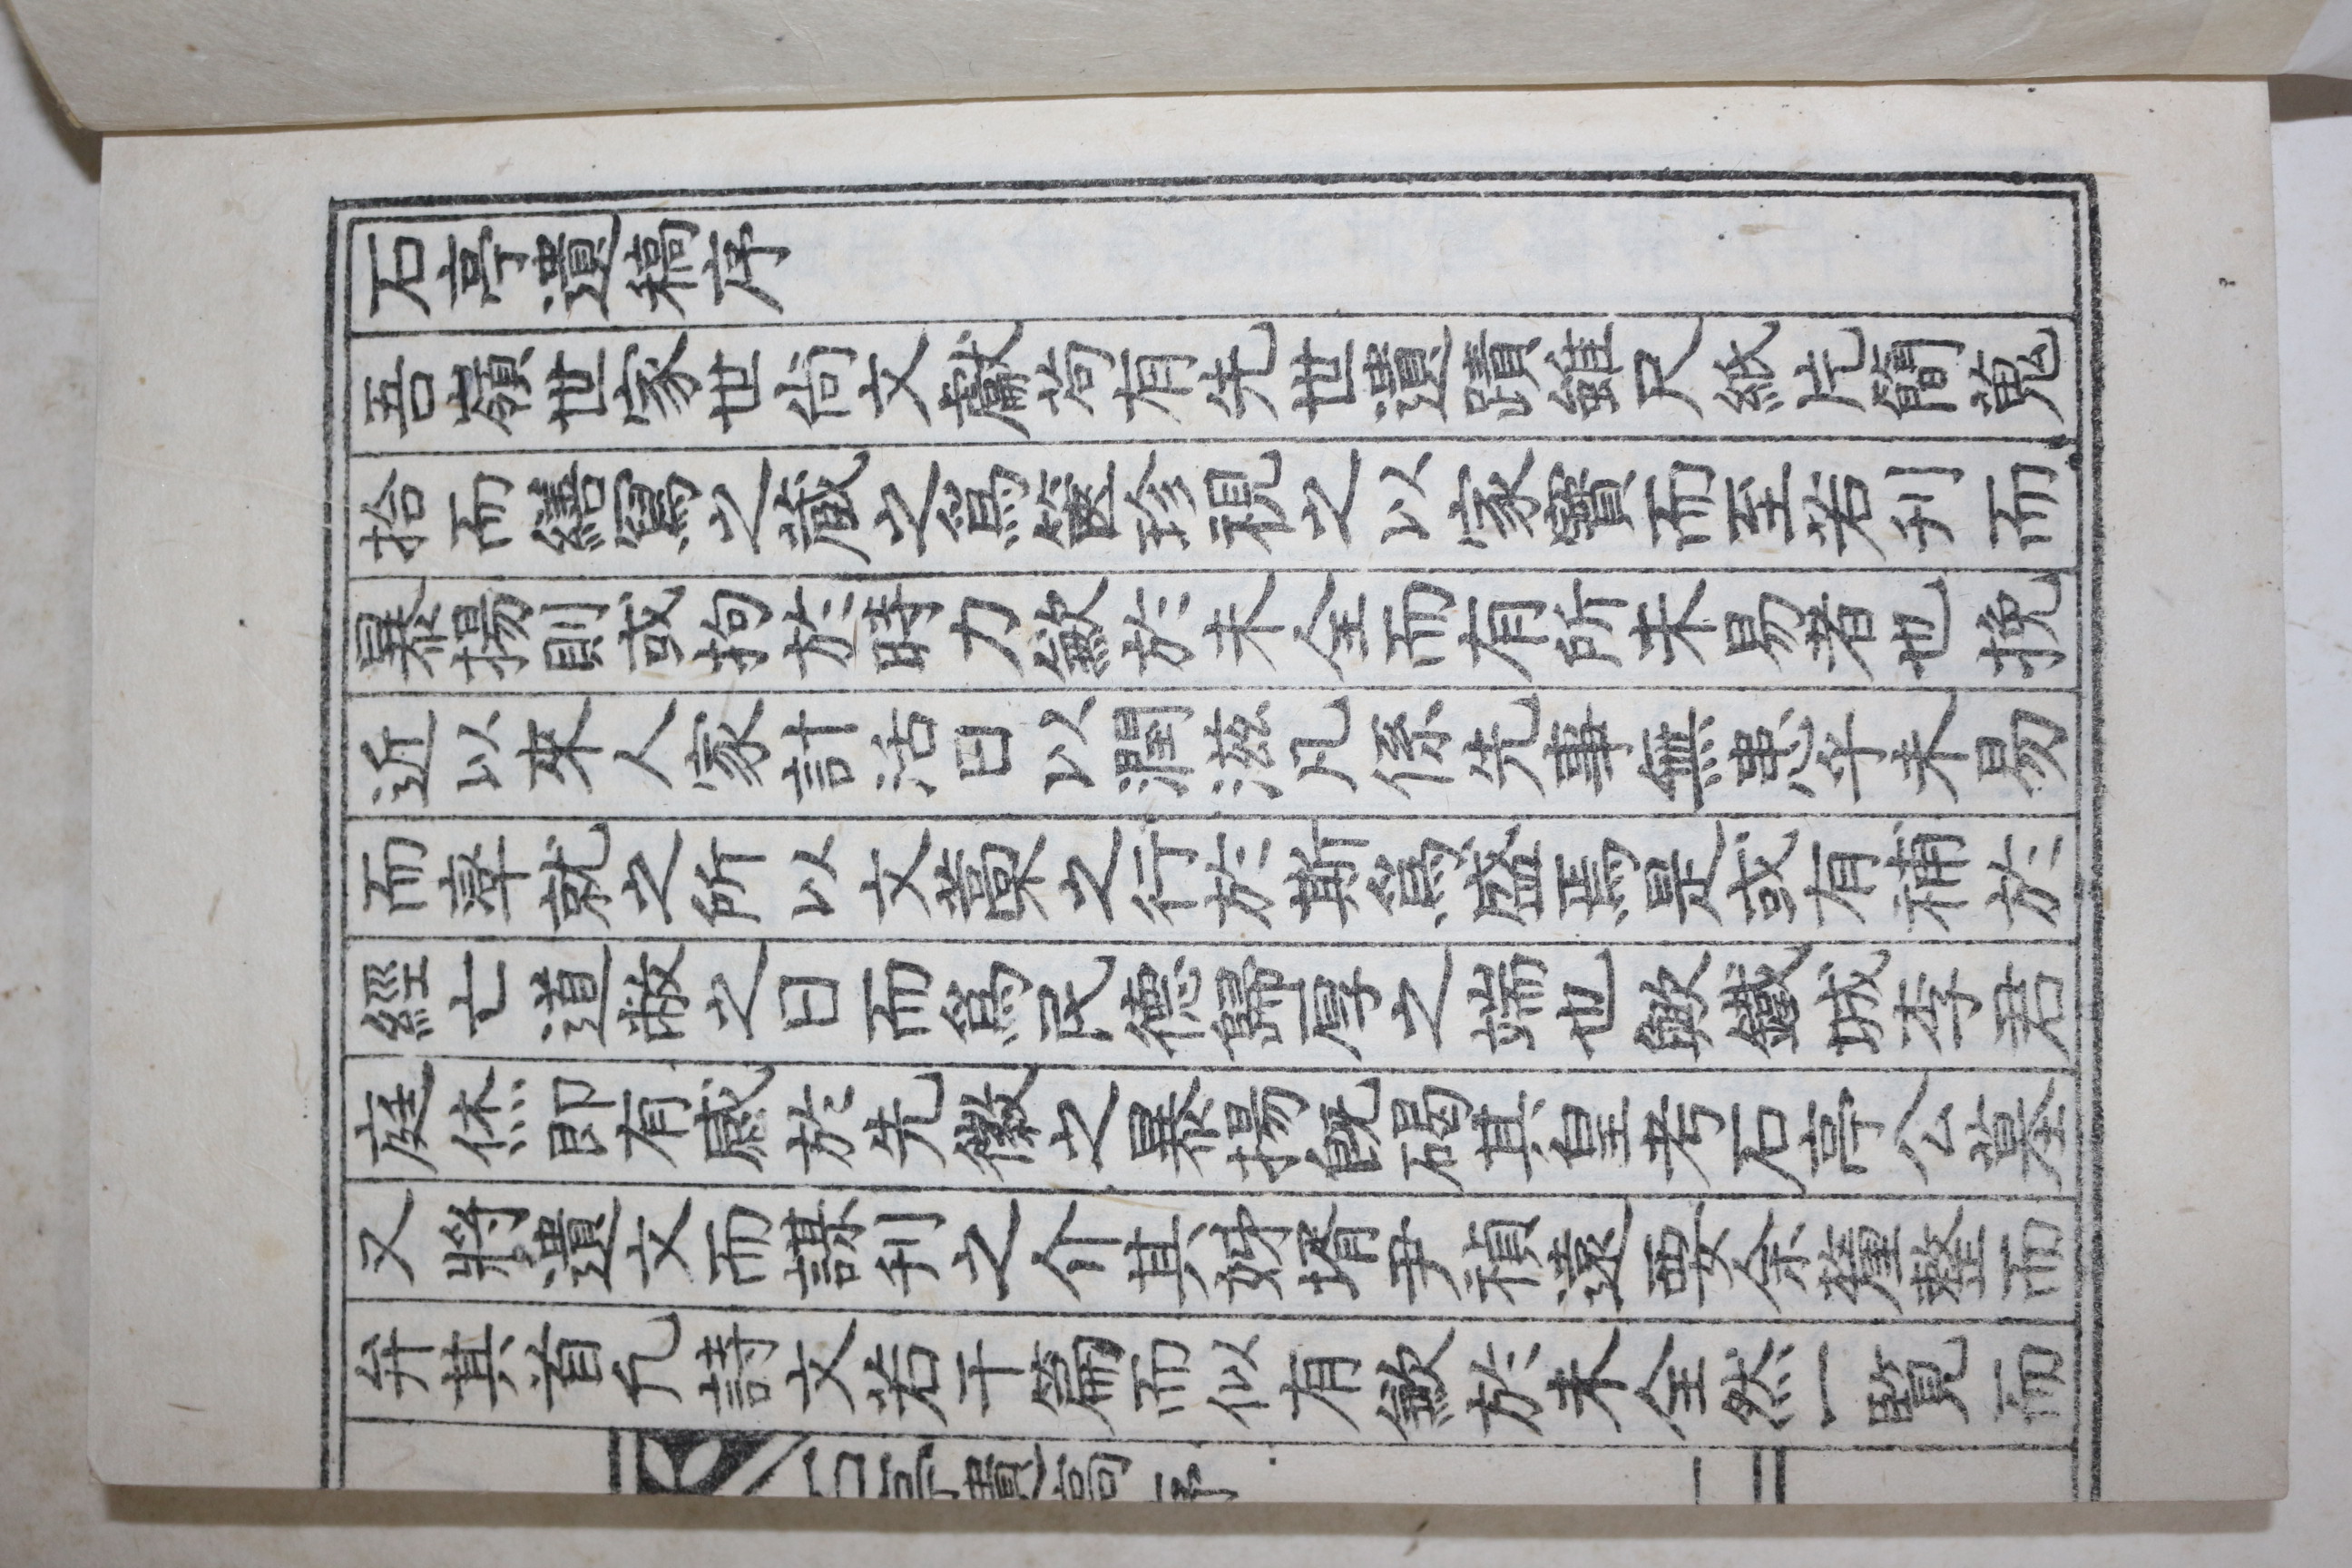 石亭遺稿序
吾嶺世家世尙文獻苟有先世遺蹟雖尺紙片簡蒐
拾而繕寫之蔵之爲篋珍視之以家寶而至若刋而
暴揚則或拘於時力歉於未全而有所未易者也挽
近以來人家計活日以潤滋凡係先事無患乎未易
而率就之所以文藁之行於斯爲盛焉是或有補於
經亡道敝之日而爲民德歸厚之端也歟鐵城李君
庭烋即有感於先徽之暴揚旣碣其皇考石亭公墓
又將遺文而謀刋之介其姊壻尹禎遠要余釐整而
弁其首凢詩文若干篇而似有歉於未全然一覽而
石亭遺稿序 一